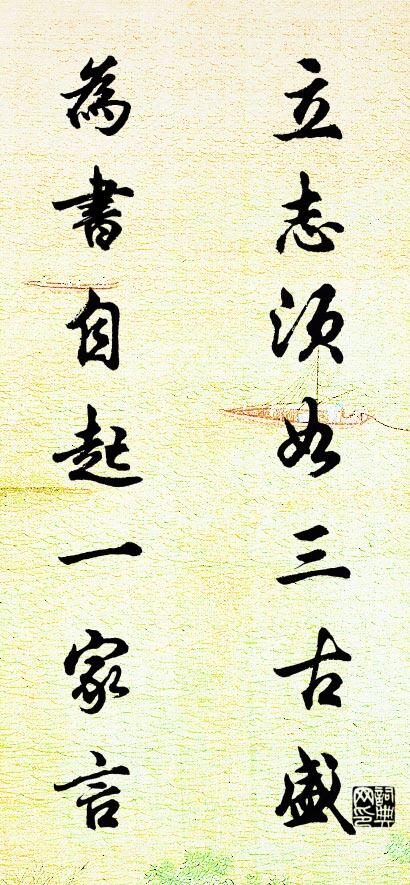 立志須如三古盛
為書自起一家言
詞典網印